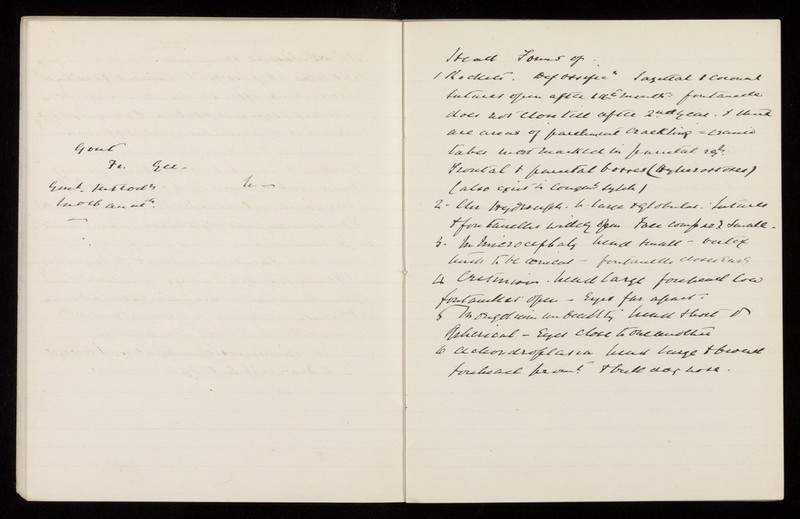 Gout
Dr. Gee.
Head Forms of.
1 Rickets. Def ossific^n Sagittal & coronal
sutures open after months fontanelle
does not close till after 2nd year. & there
are areas of parchment crackling = cranio
tabes most marked in parietal reg^n.
Frontal & parietal bosses (Hyperostoses)
(also exist in Congen^l Syph)
2. Chr Hydroceph. h. large & globular. Sutures
& fontanelles widely open Face comp^d small.
3. In microcephaly head small - vertex
tends to be conical - fontanelle closes early
4 Cretinism. head large forehead low
fontanelles open - Eyes far apart.
5 Mongolian imbecility head short &
spherical - Eyes close to one another
6 Achondroplasia head large & broad
forehead prom^t & bull dog nose.